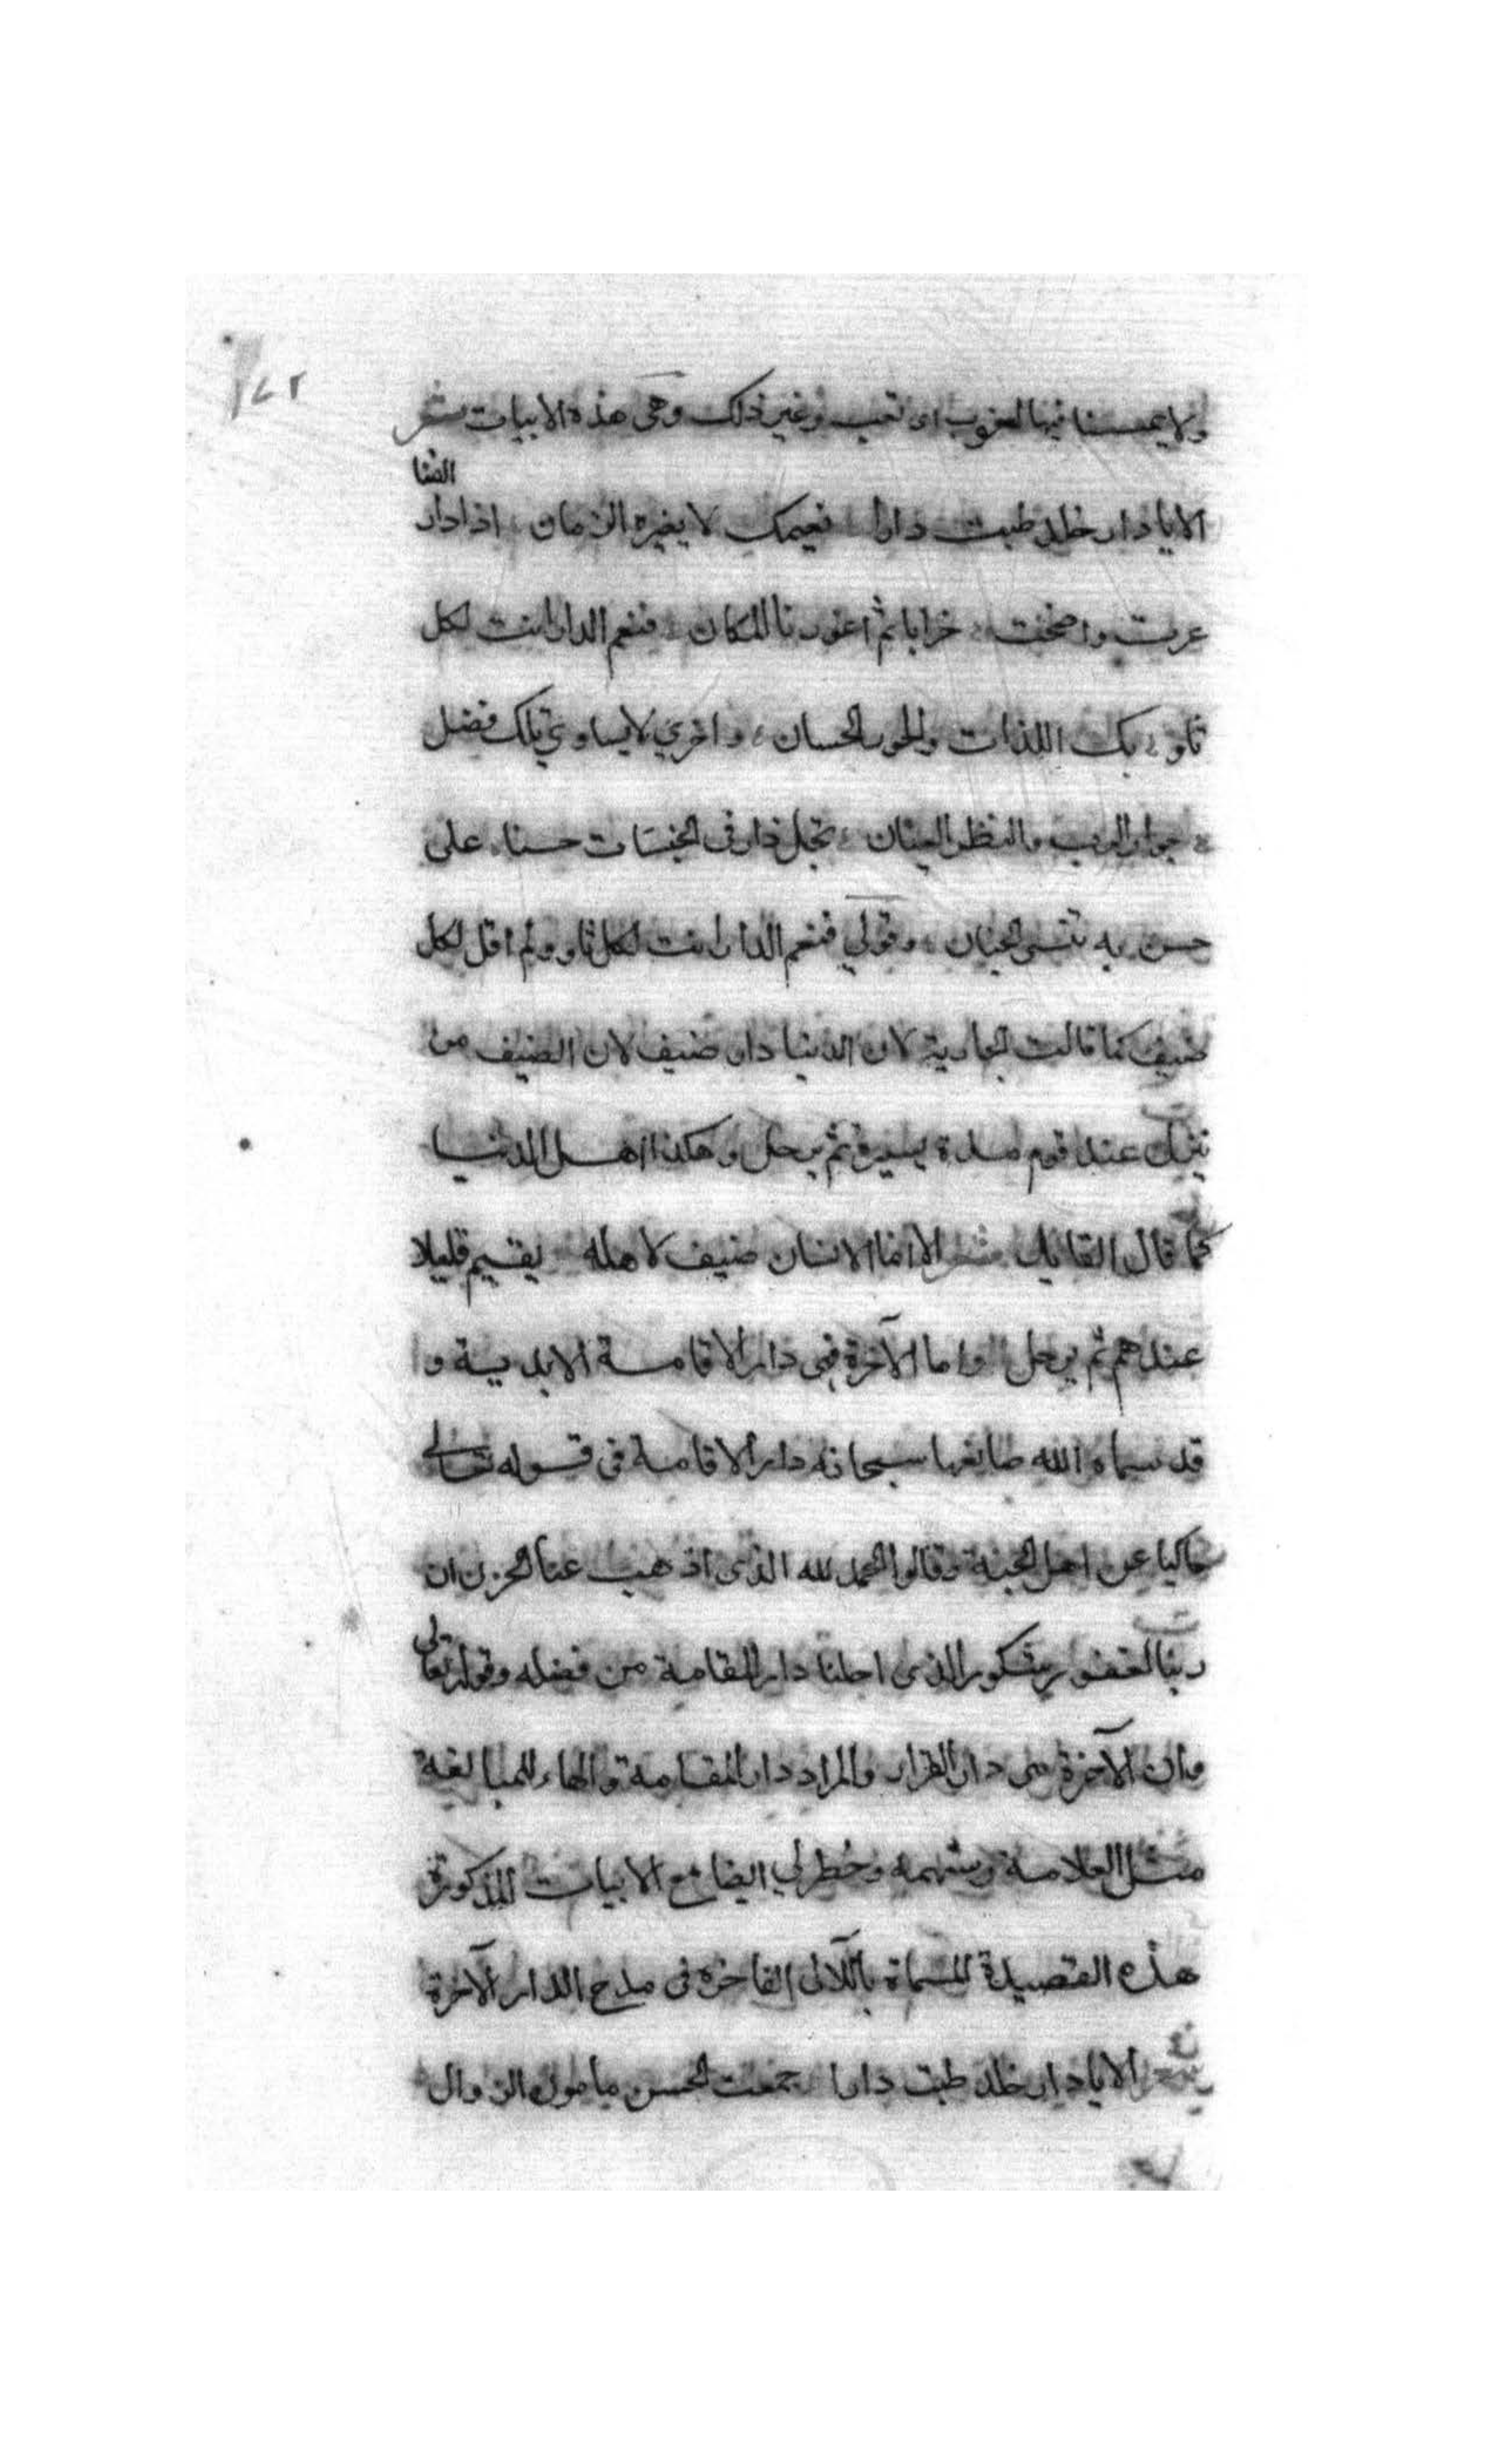 ٧٢
ولا يمسنا فيها لغوب اى تعب وغير ذلك وهى هذه الابيات شعر
الفنا
الا يا دار خلد طبت دارا نعيمك لا يغيره الزمان اذا دار
عرت واضحت خرابا ثم اعورنا المكان فنعم الدار انت لكل
ثاو بك اللذات والحور الحسان واخري لا يساوي تلك فضل
جوار الرب والنظر العيان تجل دار فى الجنات حسنا على
حسن به تنسى الجنان وقولي فنعم الدار انت لكل ثاو ولم اقل لكل
ضيف كما قالت الجارية لان الدنيا دار ضيف لان الضيف من
ينزل عند قوم مدة يسيرة ثم يرحل وهكذا اهل الدنيا
كما قال القايل شعر الا انما الانسان ضيف لاهله يقيم قليلا
عندهم ثم يرحل واما الآخرة فهى دار الاقامة الابدية وا
قد سماه الله صانعها سبحانه دار الاقامة فى قوله تعالى
حاكيا عن اهل الجنة وقالوا الحمد لله الذى اذهب عنا الحزن ان
ربنا لغفور شكور الذى احلنا دار المقامة من فضله وقوله تعالى
وان الآخرة هى دار القرار والمراد دار المقامة والهاء للمبالغة
مثل العلامة وشهمه وخطر لي ايضا مع الابيات المذكورة
هذه القصيدة المسماة باللآلى الفاخرة فى مدح الدار الآخرة
شعر الا يا دار خلد طبت دارا جمعت الحسن مامون الزوال